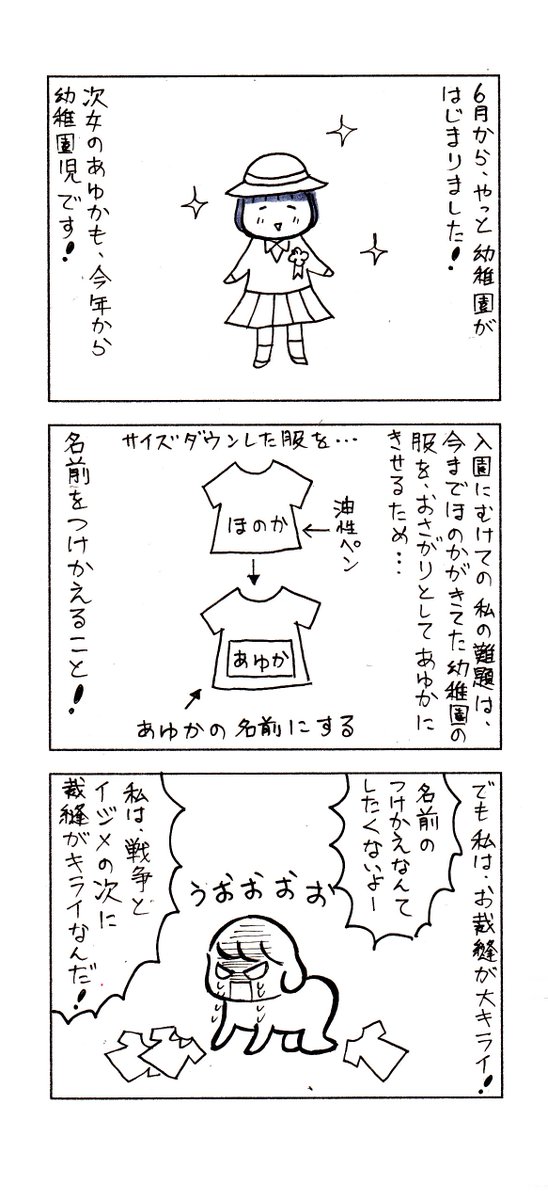 6月から、やっと幼稚園が
はじまりました!
次女のあゆかも、今年から
幼稚園児です!
入園にむけての私の難題は、
今までほのかがきてた幼稚園の
服を、おさがりとしてあゆかに
きせるため…
サイズダウンした服を…
ほのか
油性ペン
あゆか
あゆかの名前にする
名前をつけかえること!
でも私は、お裁縫が大キライ!
名前の
つけかえなんて
したくないよー
うおおおお
私は、戦争と
イジメの次に
裁縫がキライなんだ!